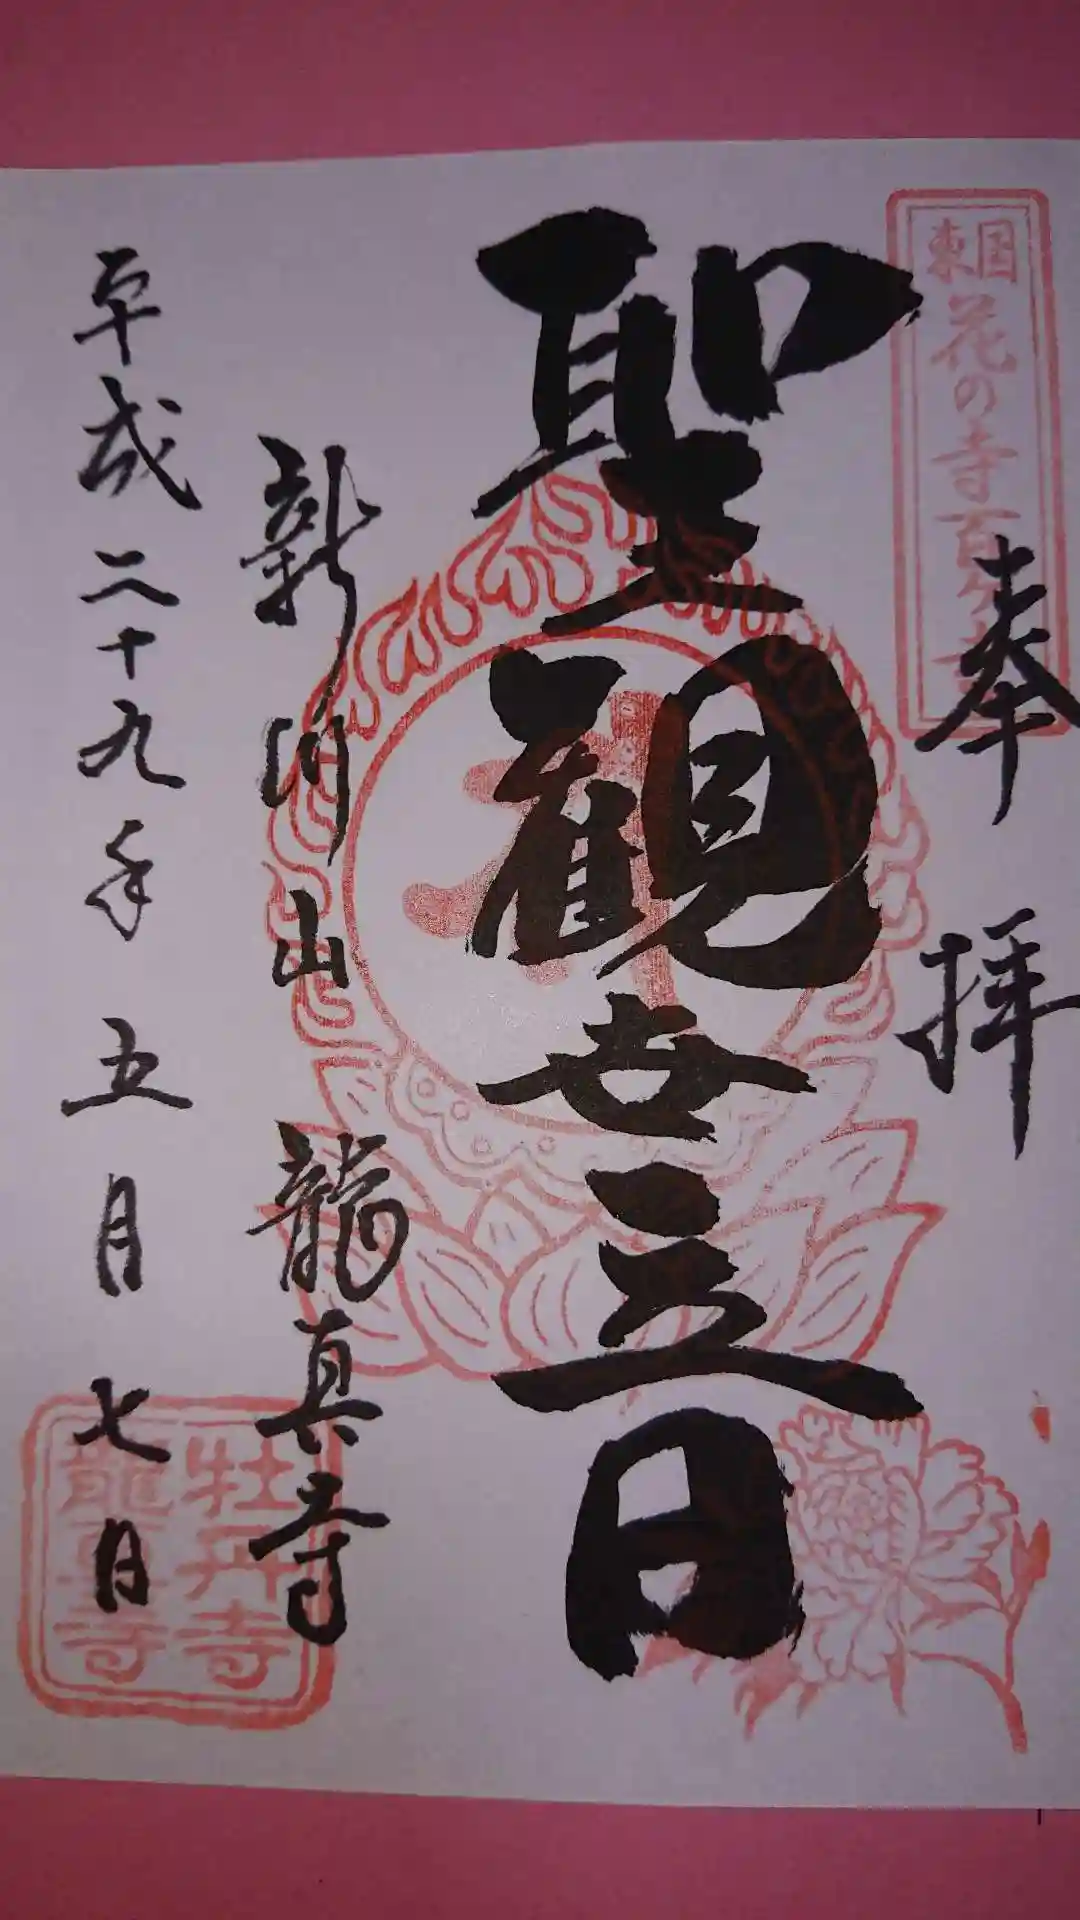 東国花の寺百ヶ寺
奉拝
聖観世音
新川山 龍真寺
平成二十九年五月七日
牡丹寺
龍真寺